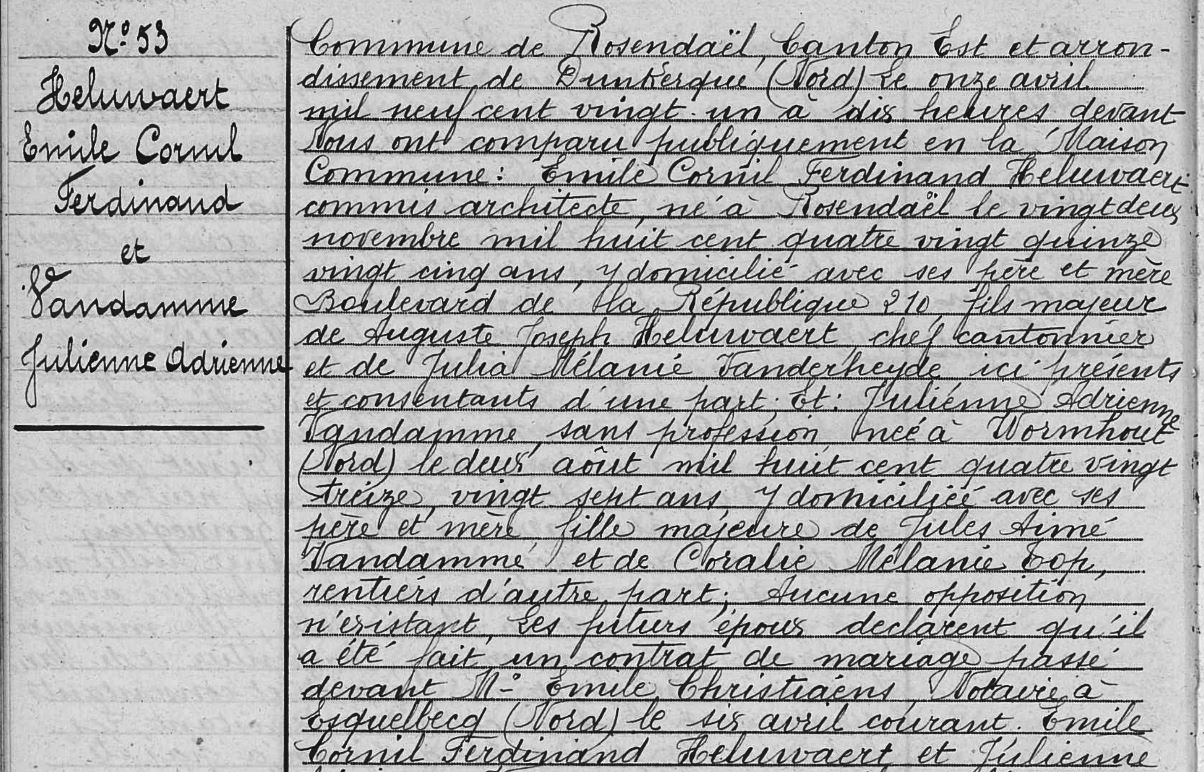 N° 53
Heluwaert
Emile Cornil
Ferdinand
et
Vandamme
Julienne Adrienne
Commune de Rosendaël, Canton Est et arron-
dissement de Dunkerque (Nord) Le onze avril
mil neuf cent vingt-un à dix heures devant
Nous ont comparu publiquement en la Maison
Commune: Emile Cornil Ferdinand Heluwaert
commis architecte, né à Rosendaël le vingt deux
novembre mil huit cent quatre vingt quinze
vingt cinq ans, y domicilié avec ses père et mère
Boulevard de la République 210, fils majeur
de Auguste Joseph Heluwaert, chef cantonnier
et de Julia Mélanie Vanderheyde ici présents
et consentants d'une part. Et: Julienne Adrienne
Vandamme, sans profession, née à Wormhout
(Nord) le deux août mil huit cent quatre vingt
treize, vingt sept ans, y domiciliée avec ses
père et mère fille majeure de Jules Aimé
Vandamme et de Coralie Mélanie Top,
rentiers d'autre part; Aucune opposition
n'existant, Les futurs époux declarent qu'il
a été fait un contrat de mariage passé
devant Me Emile Christiaens, Notaire à
Esquelbecq (Nord) le six avril courant. Emile
Cornil Ferdinand Heluwaert et Julienne